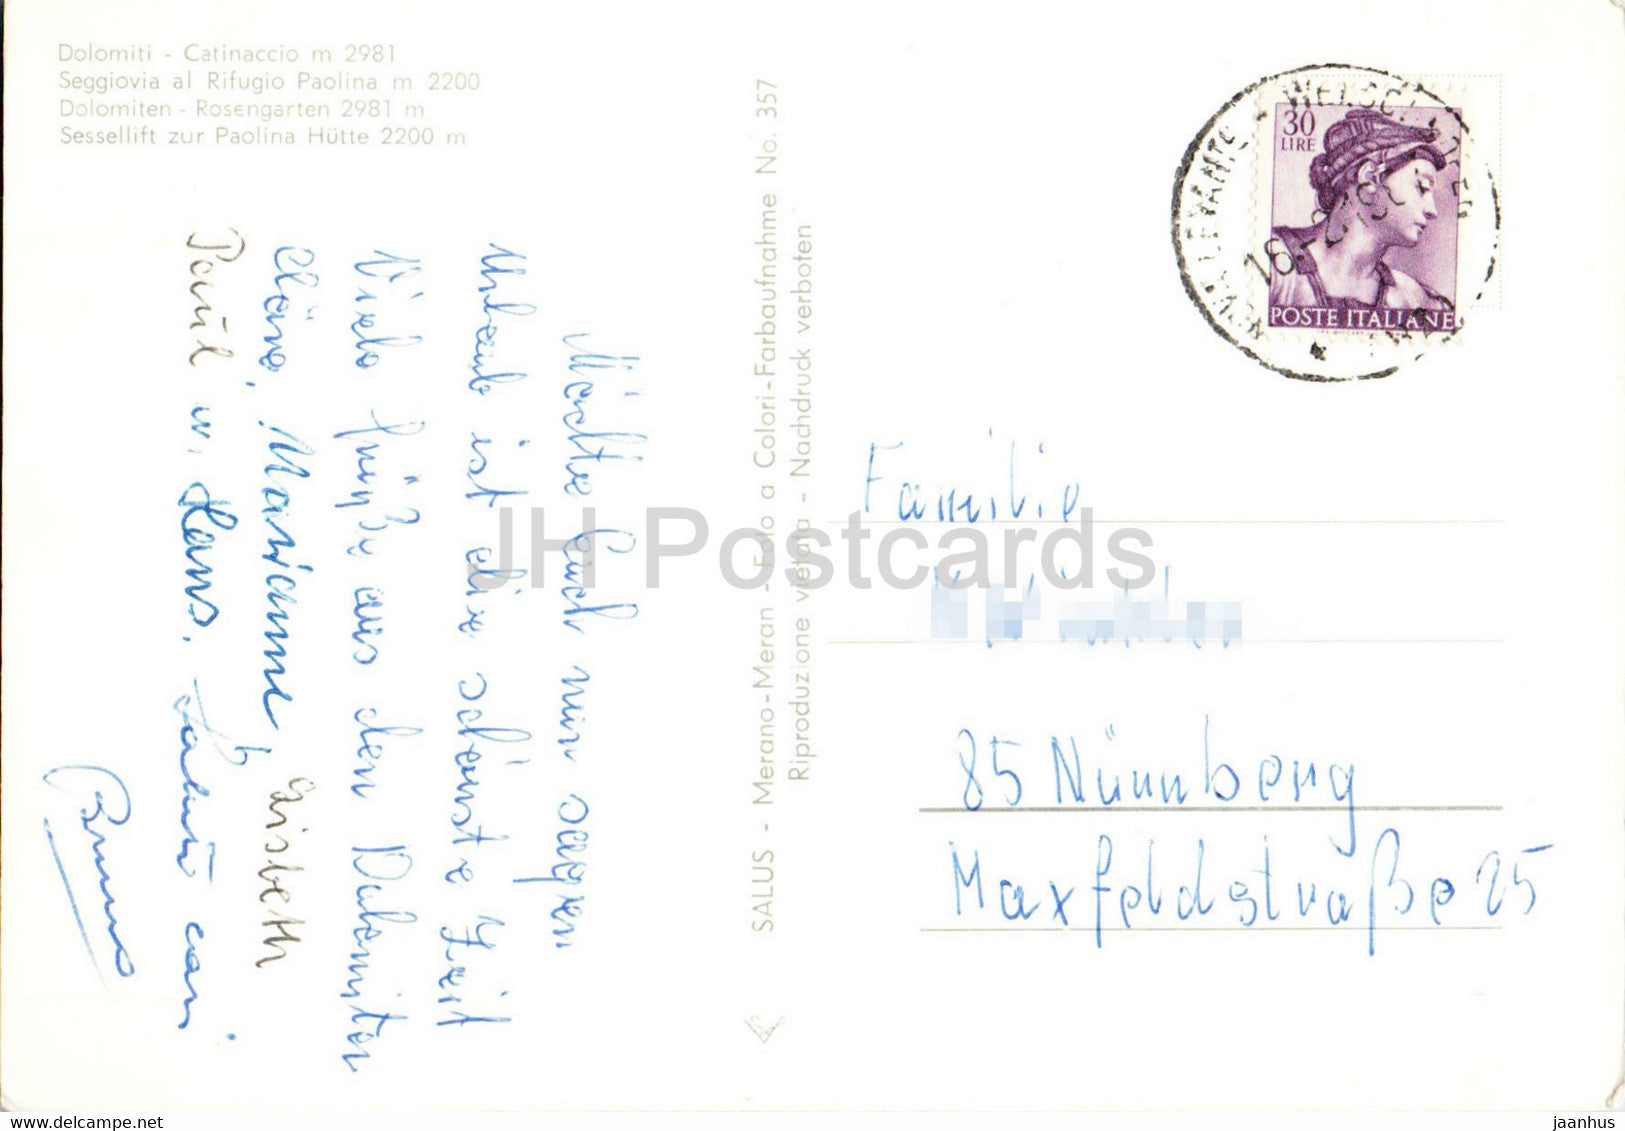 Dolomiti - Catinaccio m 2981
Seggiovia al Rifugio Paolina m 2200
Dolomiten - Rosengarten 2981 m
Sessellift zur Paolina Hütte 2200 m
Möchte Euch nur sagen
Urlaub ist die schönste Zeit
Viele Grüße aus den Dolomiten
Cläre, Marianne, Lisbeth
Paul u. Hans. Saluti cari
Bruno
SALUS - Merano-Meran - Foto a Colori-Farbaufnahme No. 357
Riproduzione vietata - Nachdruck verboten
30
LIRE
POSTE ITALIANE
NOVA LEVANTE
Familie
85 Nürnberg
Maxfeldstraße 25
JH Postcards
www.delcampe.net
jaanhus